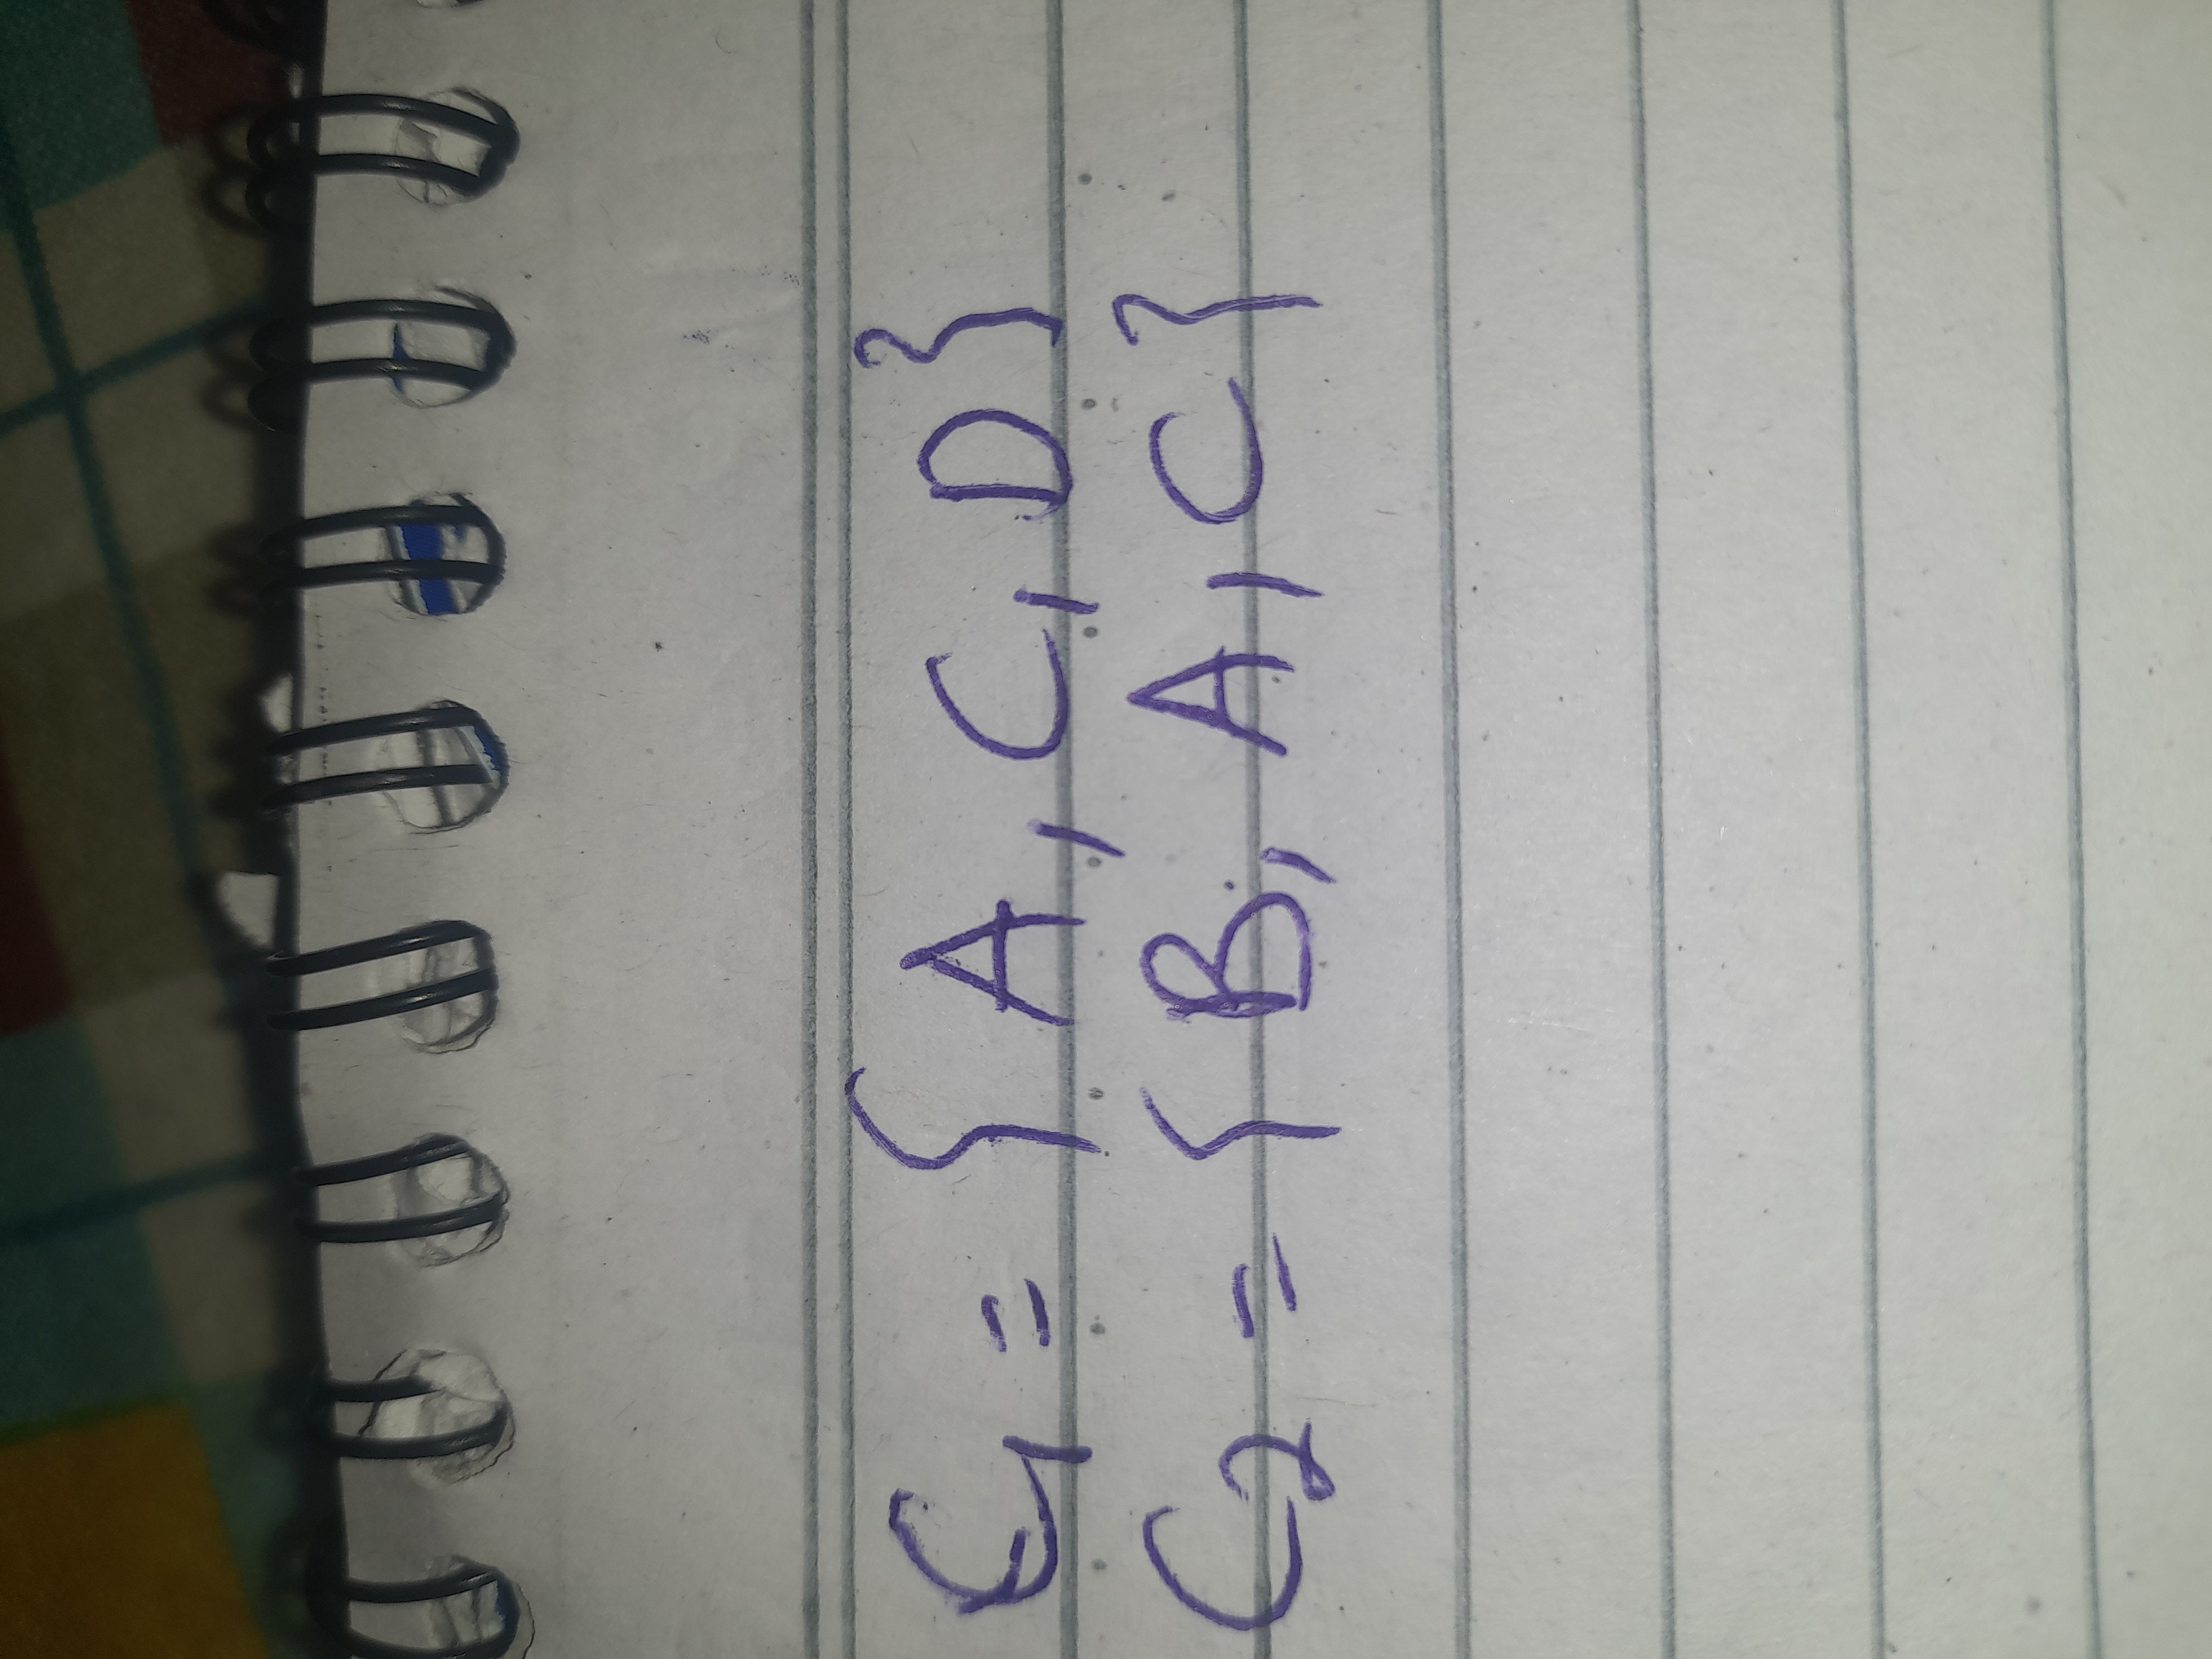 C₁ = { A, C, D}
C₂ = { B, A, C}